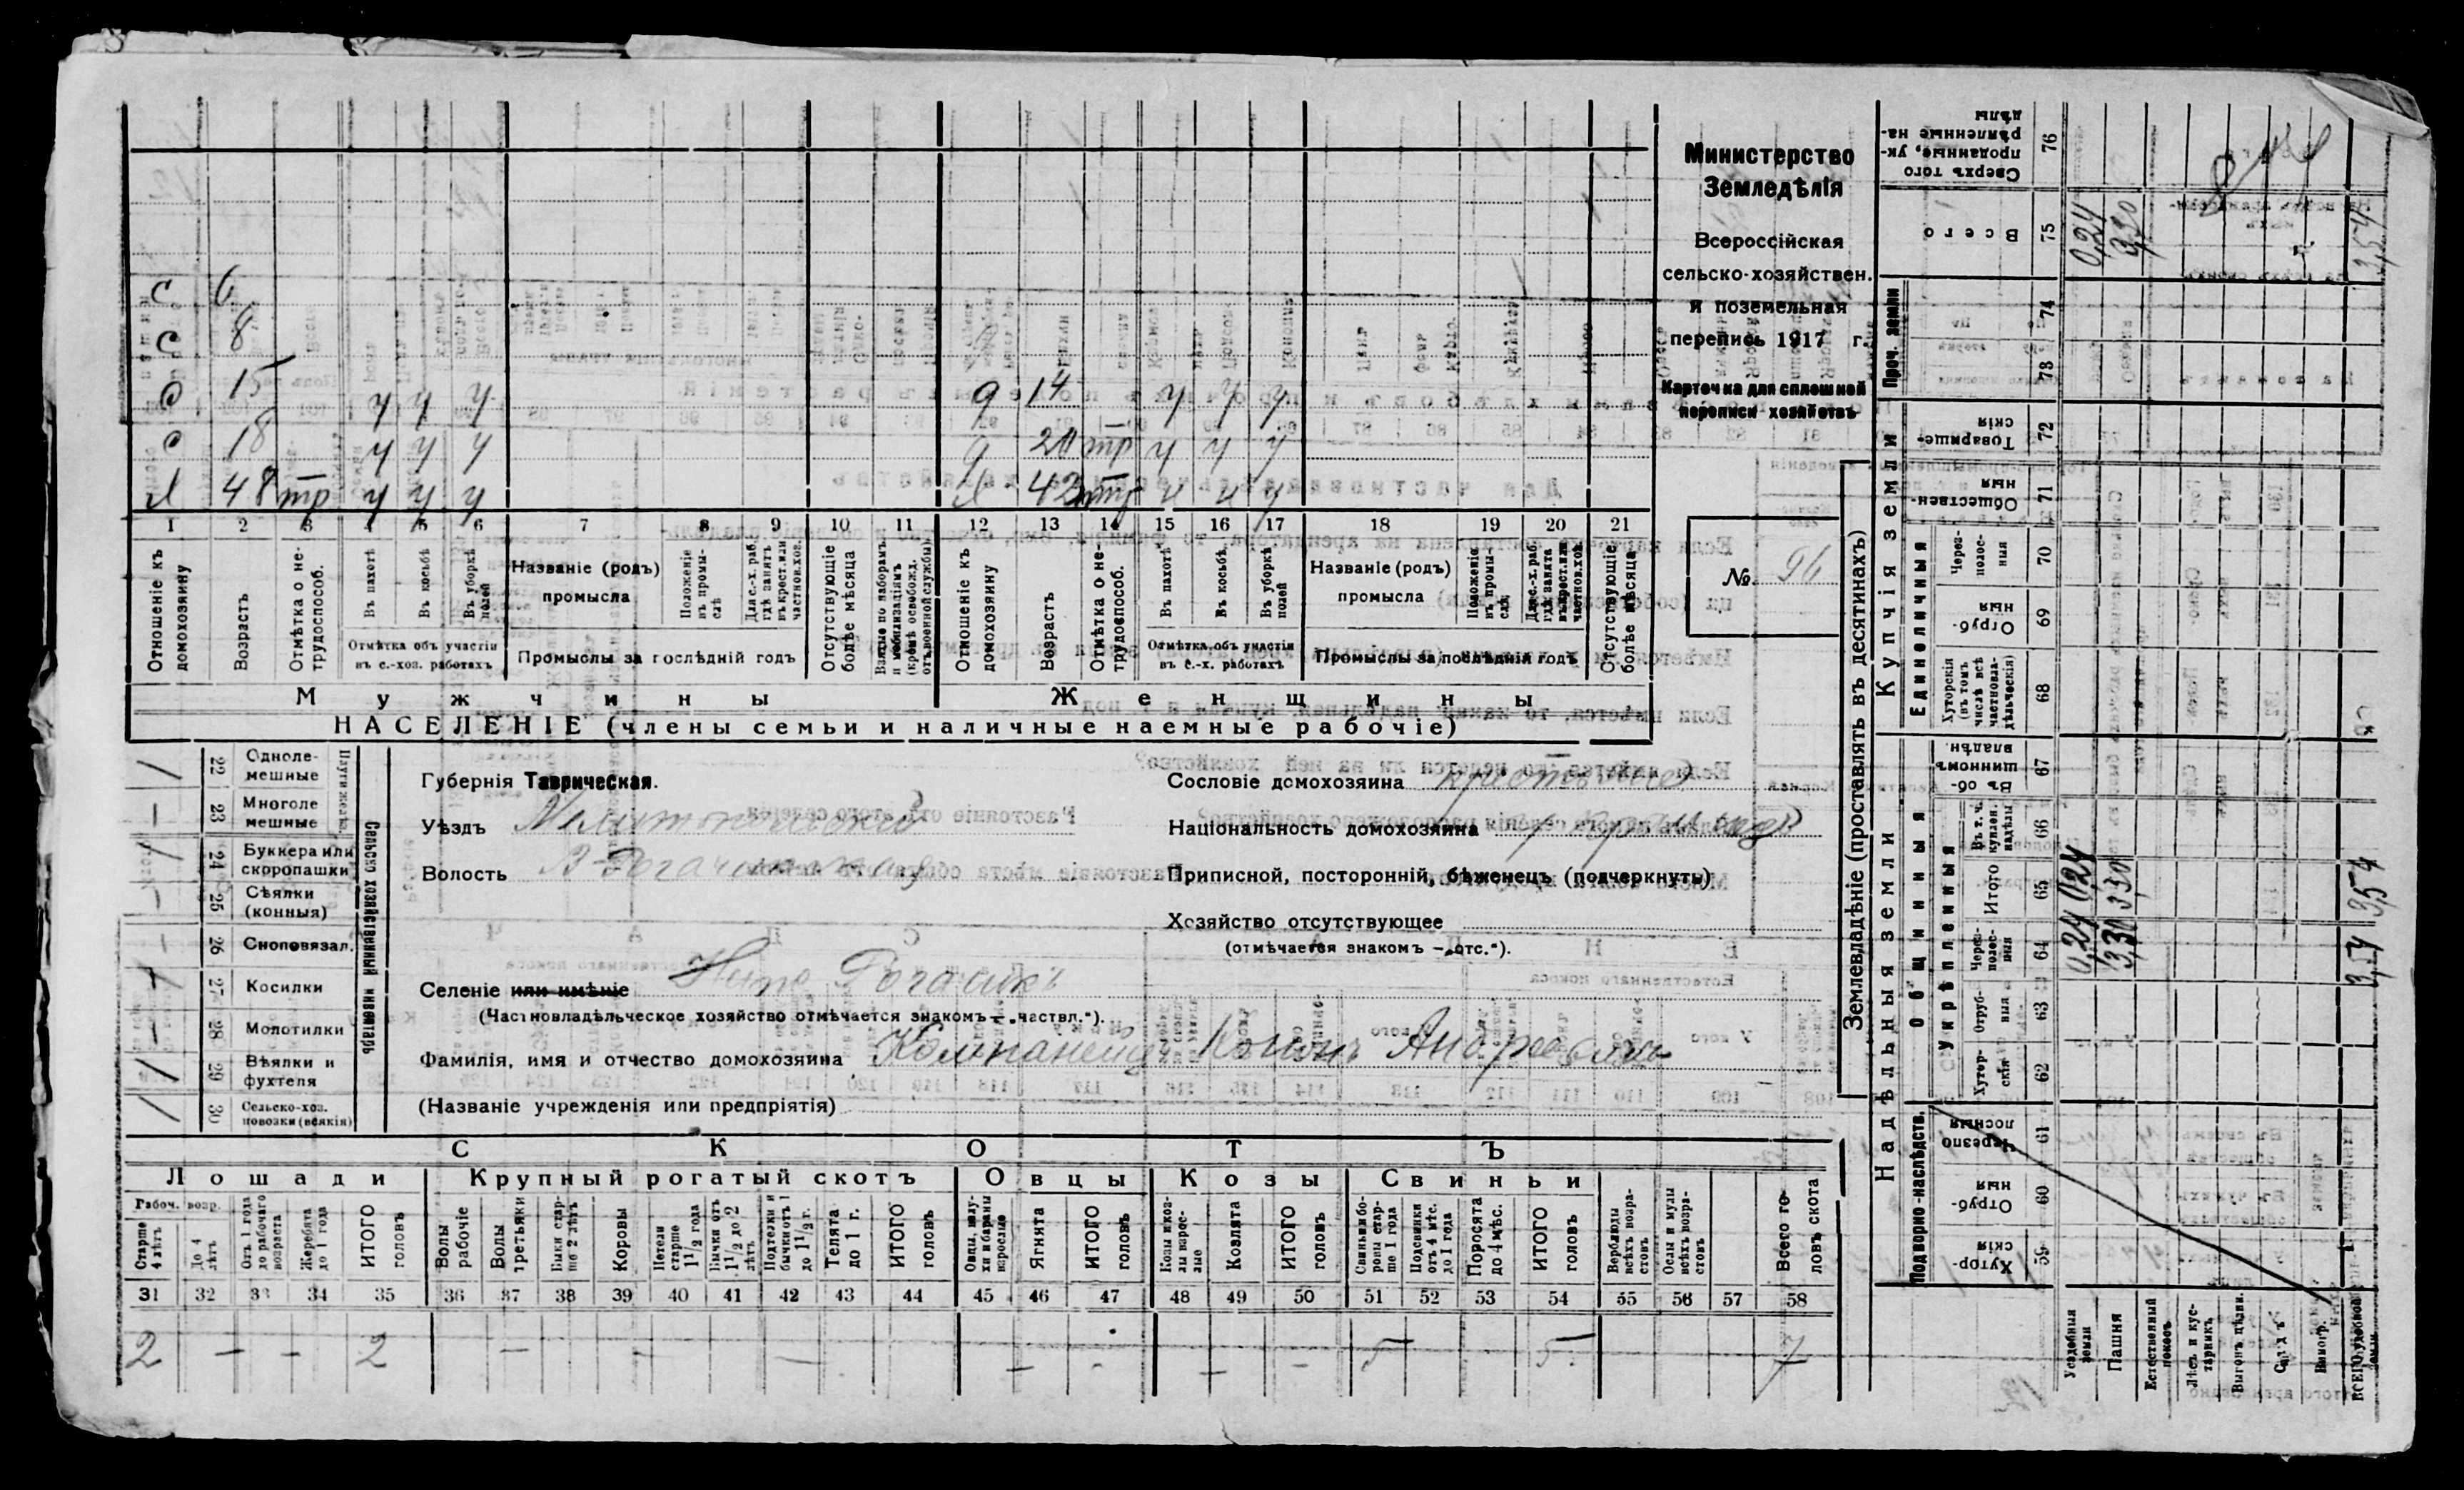 Министерство
Земледѣлія
Всероссійская
сельско-хозяйствен.
и поземельная
перепись 1917 г.
Карточка для сплошной
переписи хозяйствъ
№ 96
С 6
С 8
С 15 у у у д 14 у у у
С 18 у у у д 20 тр у у у
Я 48 тр у у у Я 42 тр у у у
1 2 3 4 5 6 7 8 9 10 11 12 13 14 15 16 17 18 19 20 21
Отношеніе къ домохозяину
Возрастъ
Отмѣтка о нетрудоспособ.
Въ пахотѣ
Въ косьбѣ
Въ уборкѣ полей
Отмѣтка объ участіи въ с.-хоз. работахъ
Названіе (родъ) промысла
Положеніе въ промыслѣ
Для с.-х. раб. гдѣ занятъ въ крест. или частнов. хоз.
Промыслы за послѣдній годъ
Отсутствующіе болѣе мѣсяца
Взятые по наборамъ и мобилизаціямъ (кромѣ освобожд. отъ военной службы)
Отношеніе къ домохозяину
Возрастъ
Отмѣтка о нетрудоспособ.
Въ пахотѣ
Въ косьбѣ
Въ уборкѣ полей
Отмѣтка объ участіи въ с.-х. работахъ
Названіе (родъ) промысла
Положеніе въ промыслѣ
Для с.-х. раб. гдѣ занята въ крест. или частнов. хоз.
Промыслы за послѣдній годъ
Отсутствующіе болѣе мѣсяца
Мужчины Женщины
НАСЕЛЕНІЕ (члены семьи и наличные наемные рабочіе)
Сельско хозяйственный инвентарь
22 Однолемешные
23 Многолемешные
24 Буккера или скоропашки
25 Сѣялки (конныя)
26 Сноповязал.
27 Косилки
28 Молотилки
29 Вѣялки и фухтеля
30 Сельско-хоз. повозки (всякія)
Губернія Таврическая.
Уѣздъ Мелитопольскій
Волость В-Рогачикская
Селеніе или имѣніе Рогачикъ
(Частновладѣльческое хозяйство отмѣчается знакомъ — „частвл.“).
Фамилія, имя и отчество домохозяина Компанеецъ Кононъ Андреевичъ
(Названіе учрежденія или предпріятія)
Сословіе домохозяина
Національность домохозяина
Приписной, посторонній, бѣженецъ (подчеркнуть)
Хозяйство отсутствующее
(отмѣчается знакомъ — „отс.“).
СКОТЪ
Лошади Крупный рогатый скотъ Овцы Козы Свиньи
Рабоч. возр.
Старше 4 лѣтъ
До 4 лѣтъ
Отъ 1 года до рабочаго возраста
Жеребята до 1 года
ИТОГО головъ
Волы рабочіе
Волы третьяки
Быки старше 2 лѣтъ
Коровы
Нетели старше 1½ года
Бычки отъ 1½ до 2 лѣтъ
Подтелки и бычки отъ 1 до 1½ г.
Телята до 1 г.
ИТОГО головъ
Овцы, валухи и бараны взрослые
Ягнята
ИТОГО головъ
Козы и козлы взрослые
Козлята
ИТОГО головъ
Свиньи и боровы старше 1 года
Подсвинки отъ 4 мѣс. до 1 года
Поросята до 4 мѣс.
ИТОГО головъ
Верблюды всѣхъ возрастовъ
Ослы и мулы всѣхъ возрастовъ
Всего головъ скота
31 32 33 34 35 36 37 38 39 40 41 42 43 44 45 46 47 48 49 50 51 52 53 54 55 56 57 58
2 — — 2 — — — — — — — 5 5 7
Землевладѣніе (проставлять въ десятинахъ)
Надѣльныя земли
Купчія земли
Проч. земли
Подворно-наслѣдств.
Общинныя
Укрѣпленныя
Единоличныя
Хуторскія 59
Отрубныя 60
Черезполосныя 61
Хуторскія 62
Отрубныя 63
Черезполосныя 64
Итого 65
Въ т. ч. куплен. надѣлы 66
Въ общинномъ владѣн. 67
Хуторскія (въ томъ числѣ всѣ частновладѣльческія) 68
Отрубныя 69
Черезполосныя 70
Общественныя 71
Товарищескія 72
73
74
Всего 75
Сверхъ того проданные, укрѣпленные надѣлы 76
Усадебныя земли 0,24 0,24 0,24
Пашня 3,30 3,30 3,30
Естественный покосъ
Лѣсъ и кустарникъ
Выгонъ цѣлин.
Садъ
Виногр.
ВСЕГО удобной земли 3,54 3,54 3,54